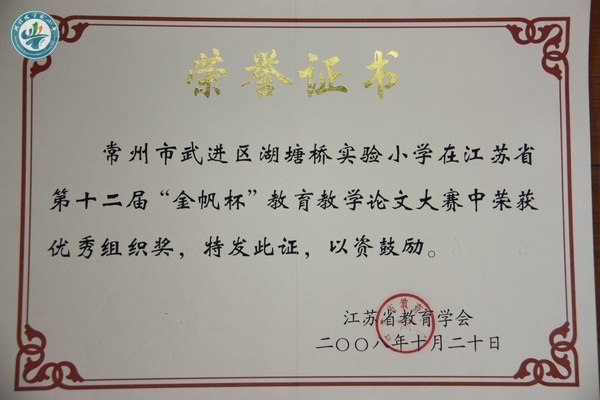 荣誉证书
常州市武进区湖塘桥实验小学在江苏省
第十二届“金帆杯”教育教学论文大赛中荣获
优秀组织奖，特发此证，以资鼓励。
江苏省教育学会
二〇〇八年十月二十日